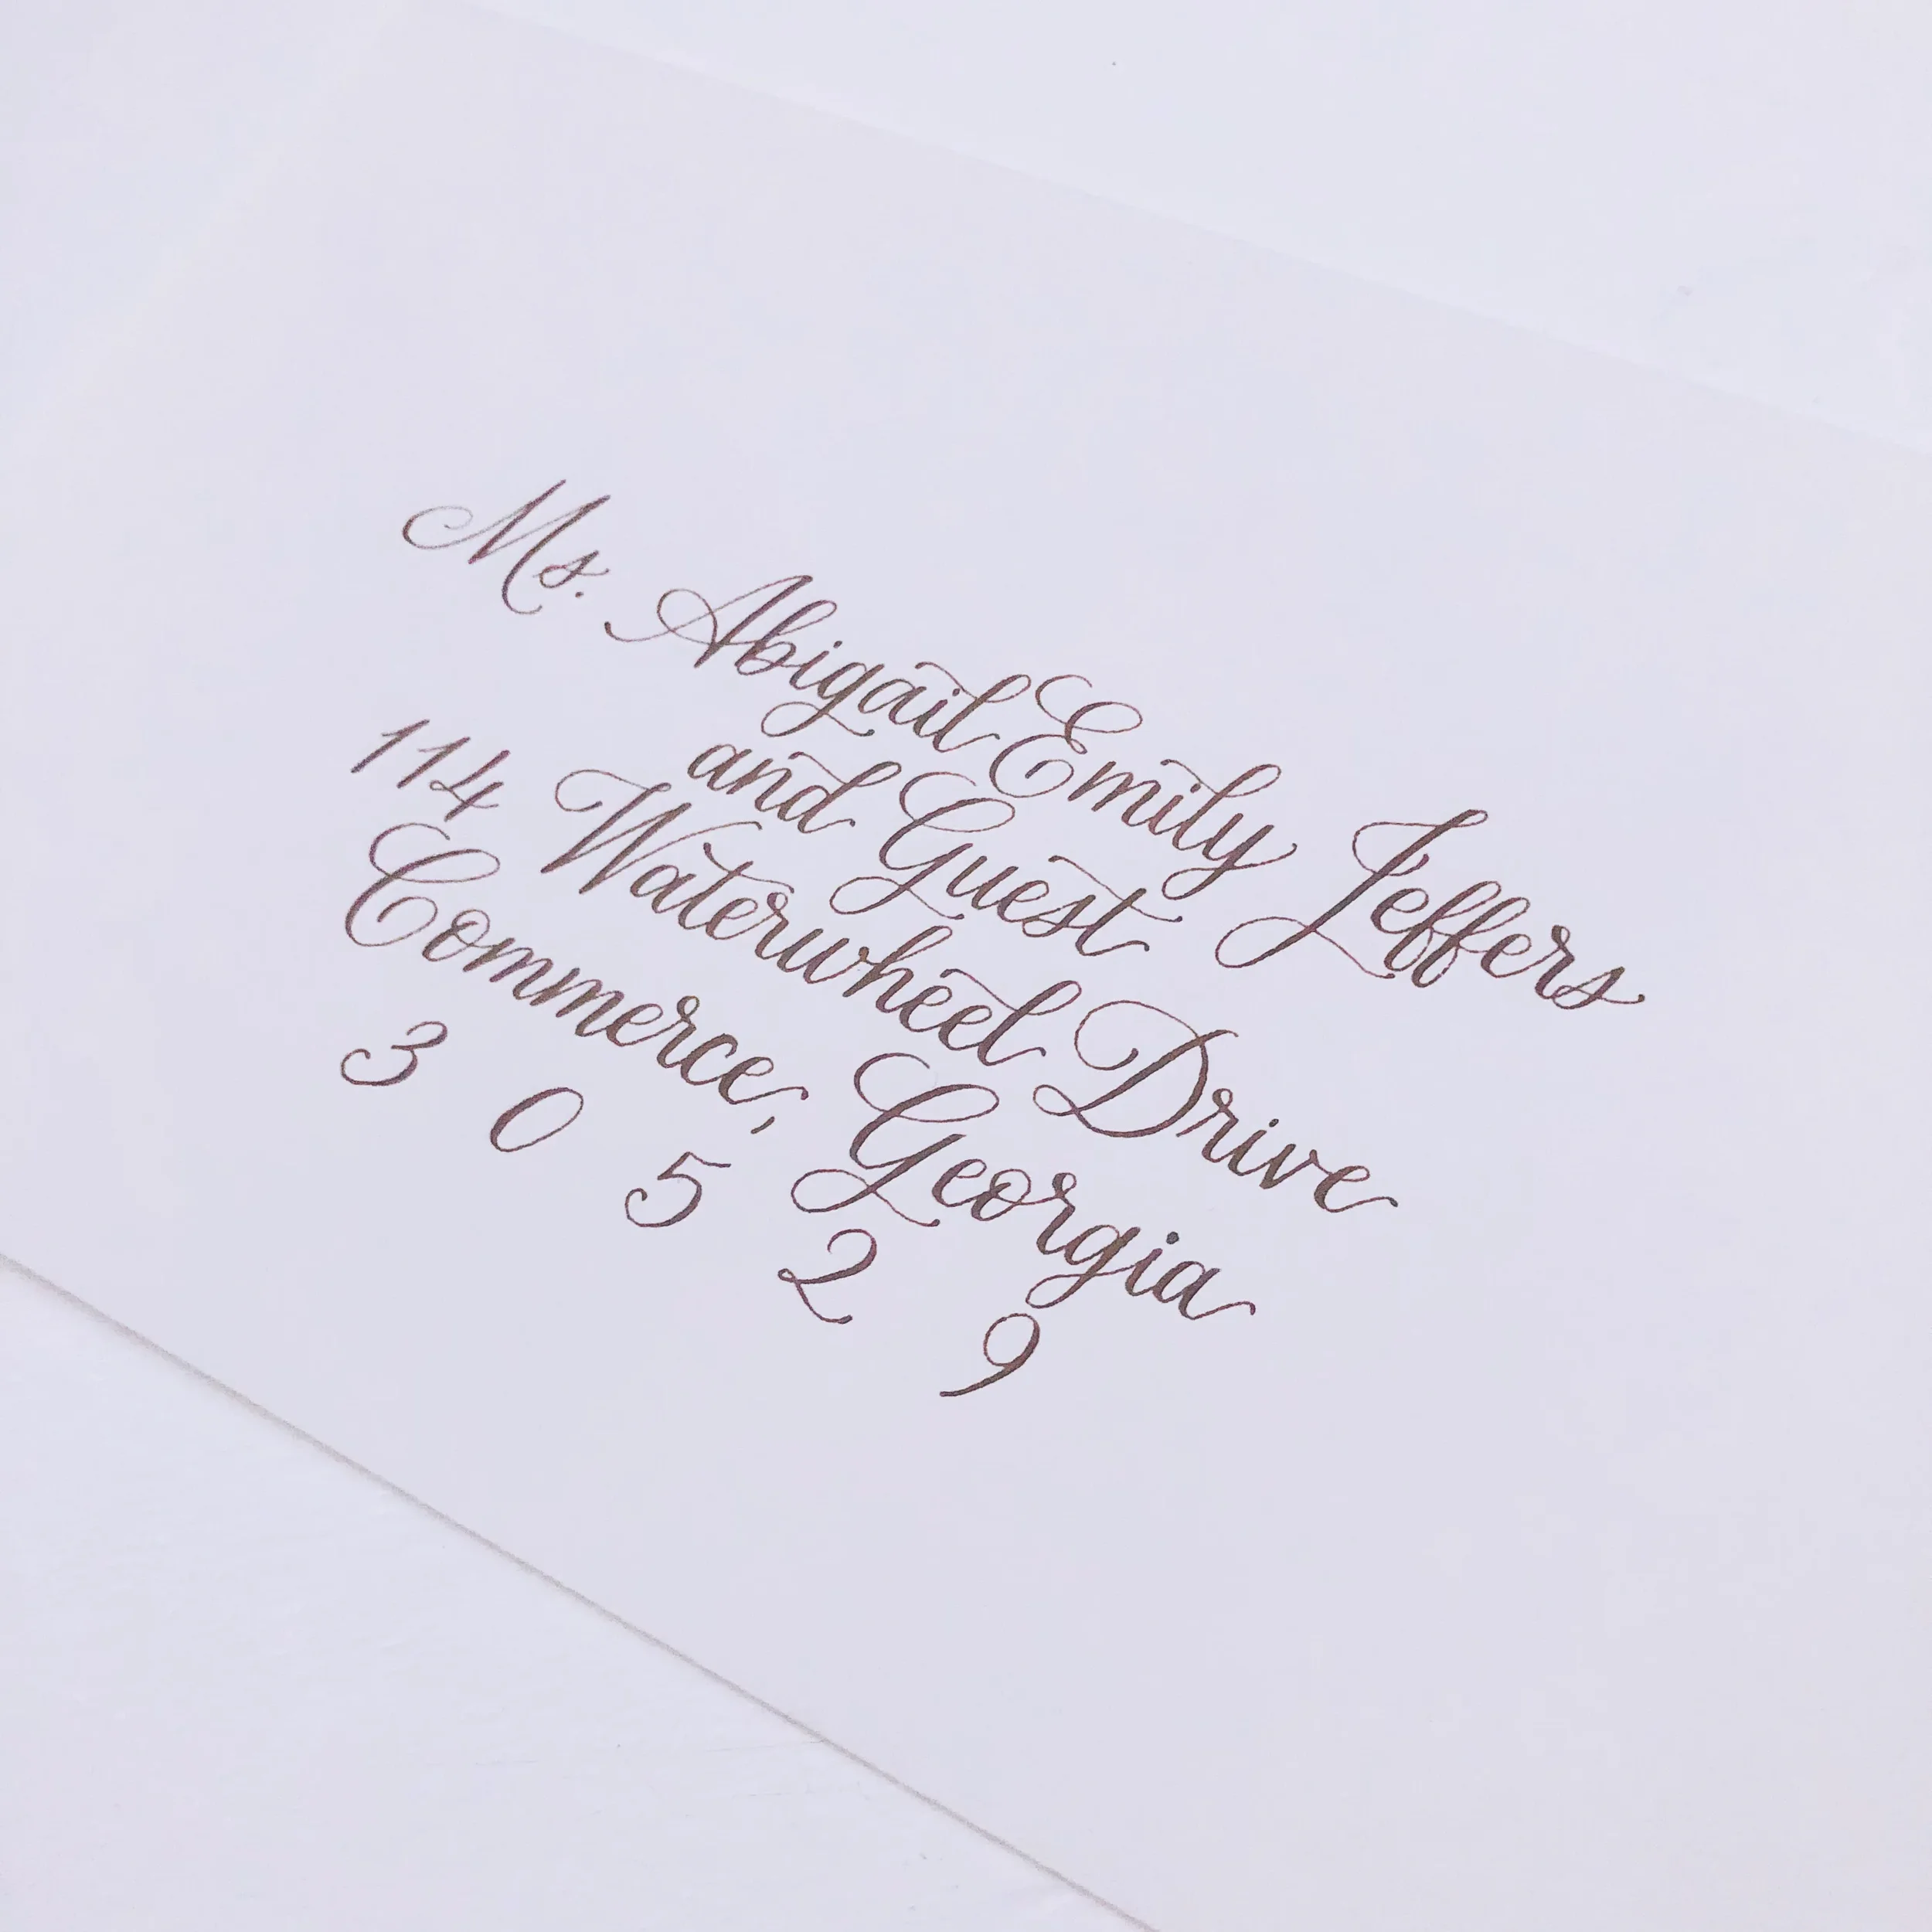 Ms. Abigail Emily Jeffers
and Guest
114 Waterwheel Drive
Commerce, Georgia
3 0 5 2 9